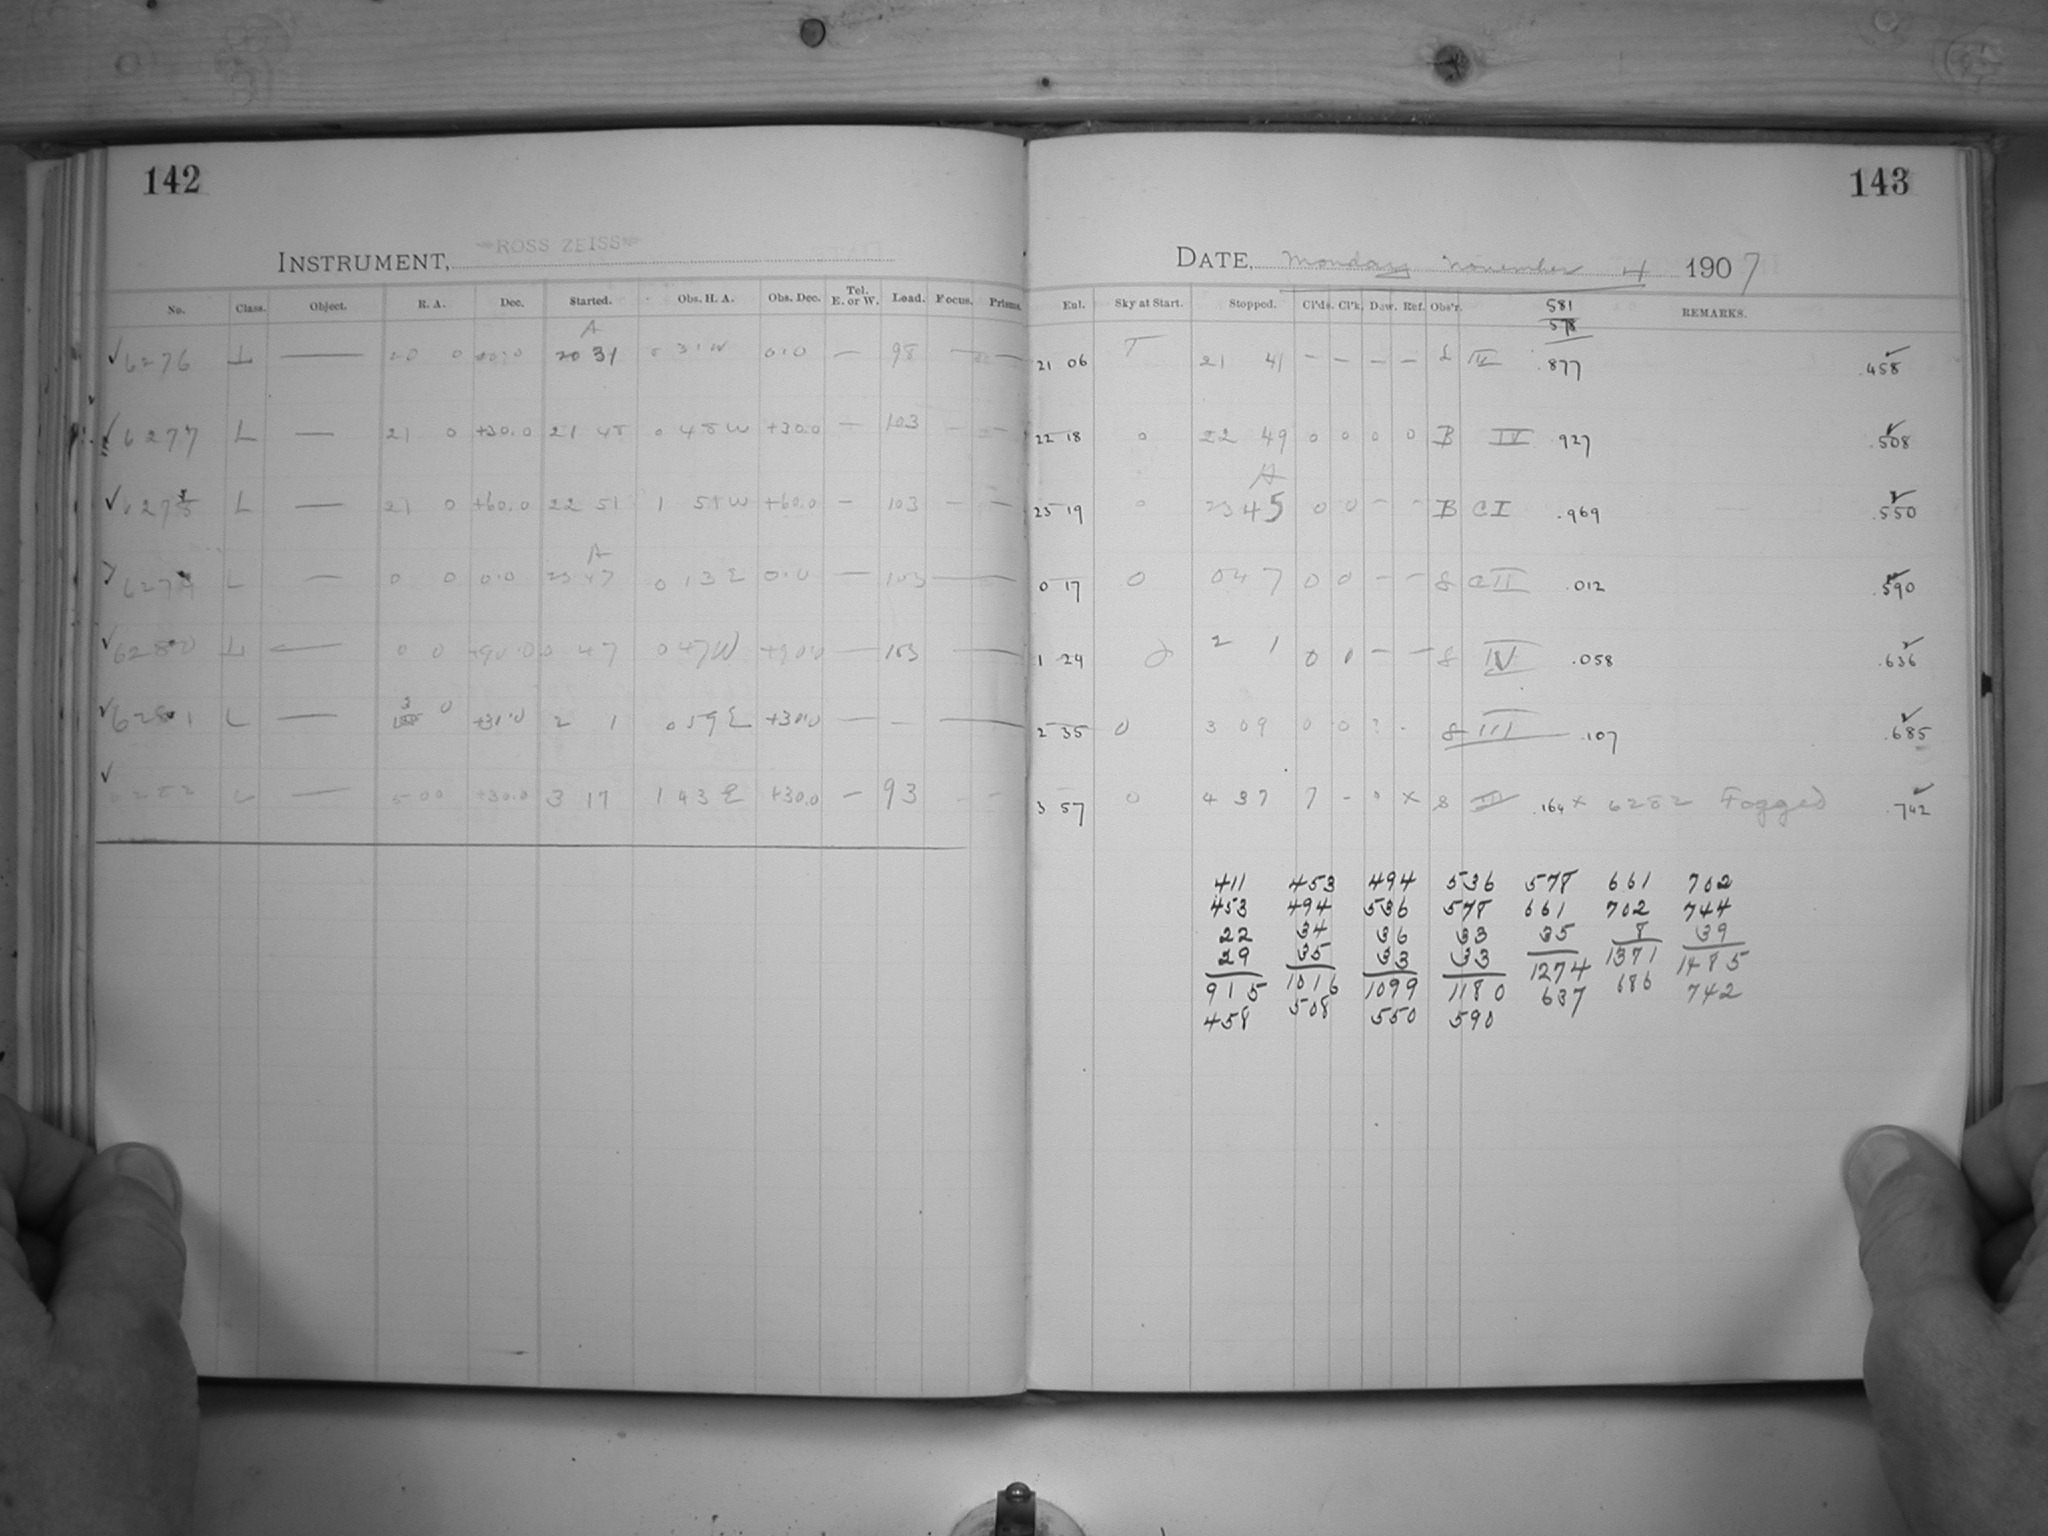 142
INSTRUMENT, ROSS ZEISS
No. Class. Object. R. A. Dec. Started. Obs. H. A. Obs. Dec. Tel. E. or W. Load. Focus. Prisms.
A
✓ 6276 L — 20 0 20 31 0 31 W 0.0 — 98 —
✓ 6277 L — 21 0 +30.0 21 48 0 48 W +30.0 — 103 — —
✓ 6278 L — 21 0 +60.0 22 51 1 51 W +60.0 — 103 — —
A
6279 L — 0 0 0.0 23 47 0 13 E 0.0 — 103 —
✓ 6280 L — 0 0 +90.0 0 47 0 47 W +90.0 — 103 —
✓ 6281 L — 3 0 +30.0 2 1 0 59 E +30.0 — — —
✓ 6282 L — 5 00 +30.0 3 17 1 43 E +30.0 — 93 - -
143
DATE, Monday November 4 1907
Ent. Sky at Start. Stopped. Cl'ds. Cl'k. Dew. Ref. Obs'r. REMARKS.
581
578
21 06 T 21 41 — — — — L III .877 .458
22 18 0 22 49 0 0 0 0 B IV .927 .508
A
23 19 0 23 45 0 0 - - B CI .969 .550
0 17 0 0 47 0 0 - - S CII .012 .590
1 24 0 2 1 0 0 - - S IV .058 .636
2 35 0 3 09 0 0 ? . S III .107 .685
3 57 0 4 37 7 - 0 x S III .164 x 6282 Fogged .742
411 453 494 536 578 661 702
453 494 536 578 661 702 744
22 34 36 33 35 8 39
29 35 33 33 1274 1371 1485
915 1016 1099 1180 637 686 742
458 508 550 590